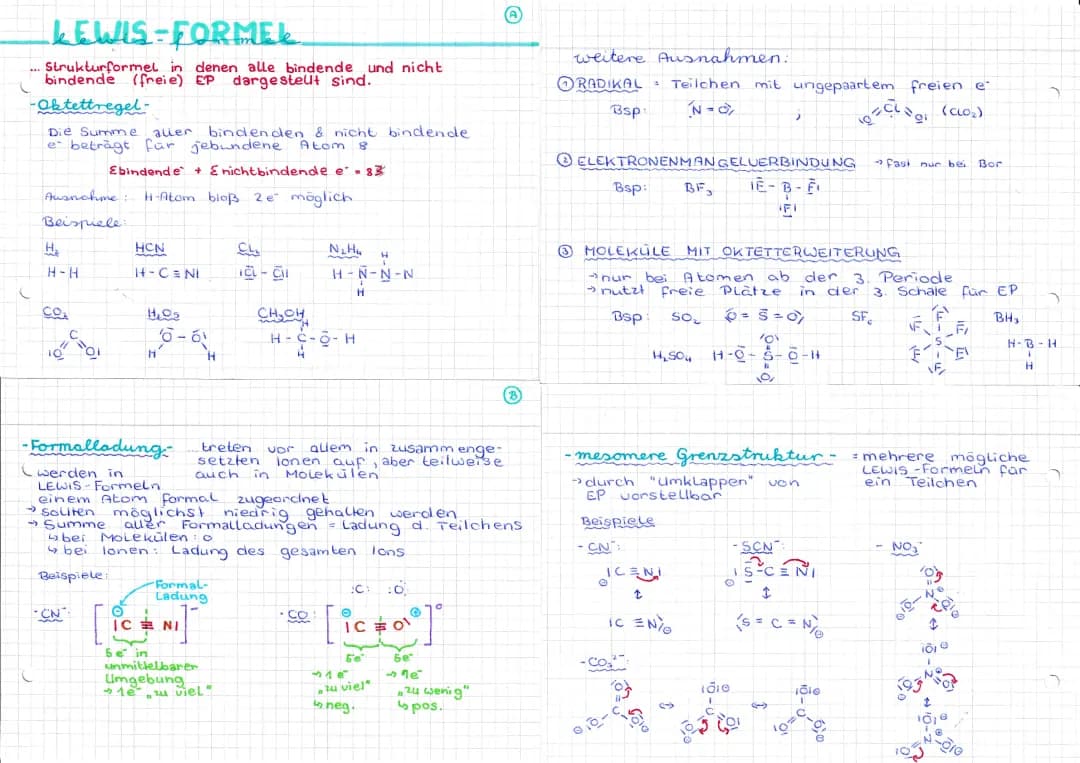 A
LEWIS-FORMEL
... Strukturformel in denen alle bindende und nicht
bindende (freie) EP dargestellt sind.
-Oktettregel-
Die Summe aller bindenden & nicht bindende
e⁻ beträgt für jebundene Atom 8
Σbindende⁻ + Σnichtbindende e⁻ = 8
Ausnahme: H-Atom bloß 2e⁻ möglich
Beispiele:
H₂ HCN Cl₂ N₂H₄
H-H H-C≡N| |Cl-Cl| H-N-N-N
H
H
CO₂ H₂O₂ CH₃OH
C
|O O|
O-O
H H
H
H-C-O-H
H
weitere Ausnahmen:
① RADIKAL = Teilchen mit ungepaartem freien e⁻
Bsp: N=O ; O Cl O| (ClO₂)
② ELEKTRONENMANGELVERBINDUNG → fast nur bei Bor
Bsp: BF₃ |F-B-F|
|F|
③ MOLEKÜLE MIT OKTETTERWEITERUNG
→ nur bei Atomen ab der 3. Periode
→ nutzt freie Plätze in der 3. Schale für EP
Bsp: SO₂ O=S=O SF₆ BH₃
F
F F
S
F F
F
H-B-H
H
H₂SO₄ H-O-S-O-H
O
O
B
-Formalladung- ...treten vor allem in zusammenge-
setzten Ionen auf, aber teilweise
auch in Molekülen
werden in
LEWIS-Formeln
einem Atom formal zugeordnet
→ sollten möglichst niedrig gehalten werden
→ Summe aller Formalladungen = Ladung d. Teilchens
↳ bei Molekülen: 0
↳ bei Ionen: Ladung des gesamten Ions
Beispiele:
Formal-
Ladung
:C: :O:
- CN⁻: [|C≡N|]⁻ · CO: [|C≡O|]⁰
⊖ ⊖ ⊕
5e⁻ in
unmittelbarer
Umgebung
→ 1e⁻ „zu viel"
5e⁻ 5e⁻
→ 1e⁻ → 1e⁻
„zu viel" „zu wenig"
↳ neg. ↳ pos.
-mesomere Grenzstruktur- = mehrere mögliche
LEWIS-Formeln für
ein Teilchen
→ durch "Umklappen" von
EP vorstellbar
Beispiele
- CN⁻: - SCN⁻: - NO₃⁻
|C≡N| |S-C≡N|
⊖ ⊖
↕ ↕
|C≡N ⊖ S=C=N ⊖
O
N
O O
↕
|O|⊖
N
O O
↕
|O|⊖
N
|O O|⊖
- CO₃²⁻:
O
C
⊖|O O|⊖
⇔
|O|⊖
C
⊖|O O|
⇔
|O|⊖
C
|O O|
⊖